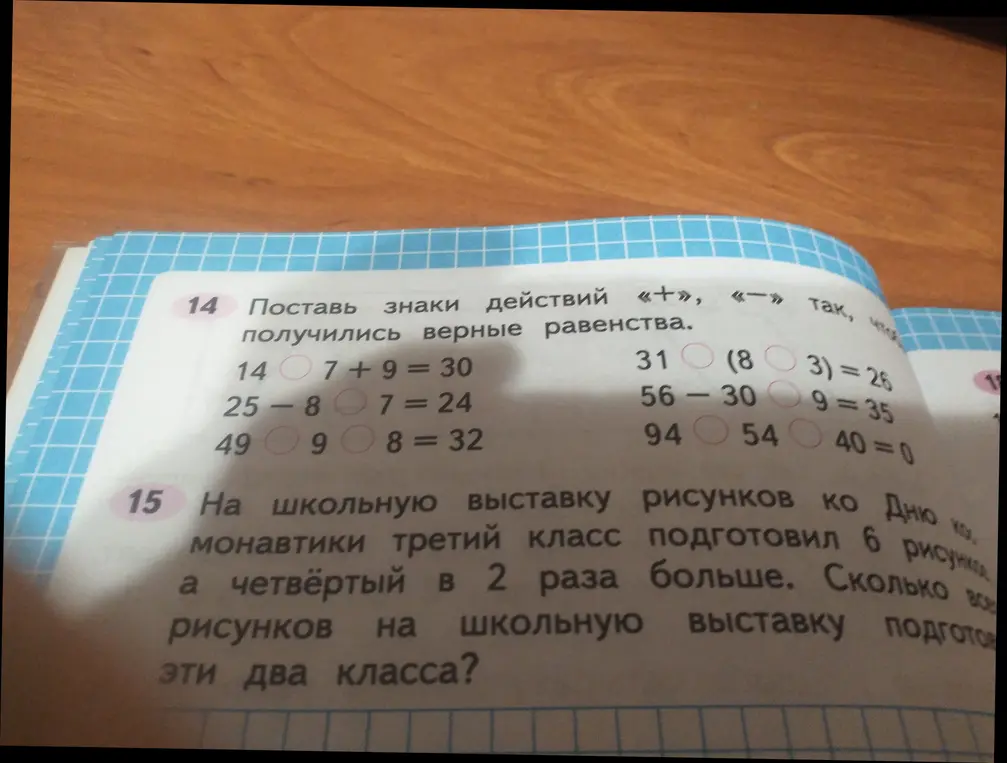 14 Поставь знаки действий «+», «−» так, что
получились верные равенства.
14 ○ 7 + 9 = 30
31 ○ (8 ○ 3) = 26
25 − 8 ○ 7 = 24
56 − 30 ○ 9 = 35
49 ○ 9 ○ 8 = 32
94 ○ 54 ○ 40 = 0
15 На школьную выставку рисунков ко Дню ко-
монавтики третий класс подготовил 6
а четвёртый в 2 раза больше. Сколько все
рисунков на школьную выставку подготов
эти два класса?